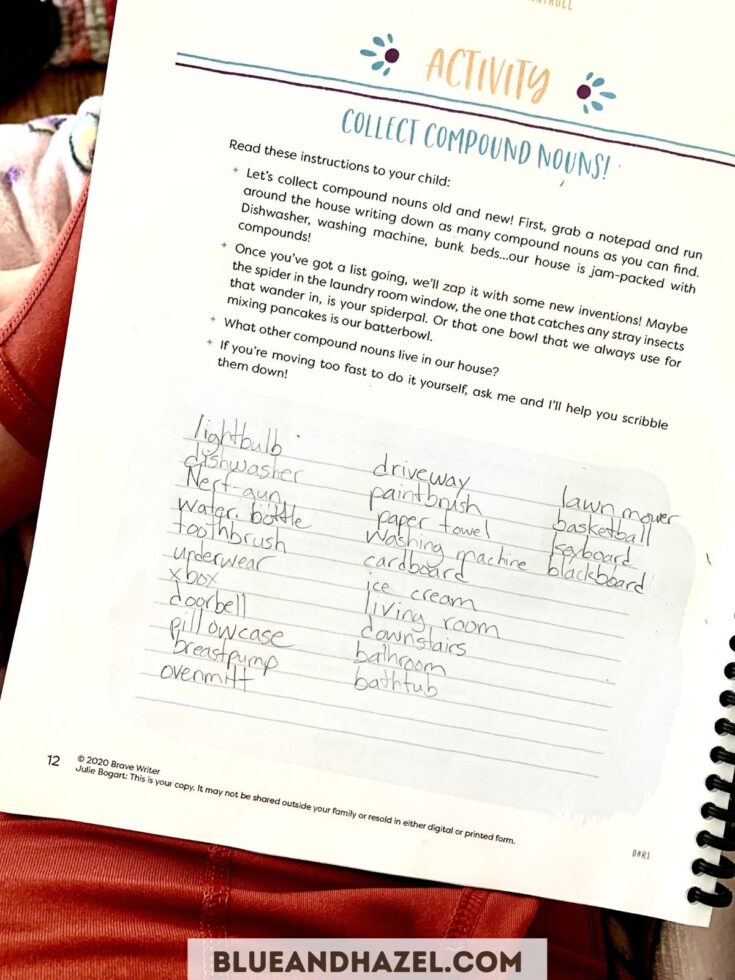 ACTIVITY
COLLECT COMPOUND NOUNS!
Read these instructions to your child:
Let's collect compound nouns old and new! First, grab a notepad and run
around the house writing down as many compound nouns as you can find.
Dishwasher, washing machine, bunk beds...our house is jam-packed with
compounds!
Once you've got a list going, we'll zap it with some new inventions! Maybe
the spider in the laundry room window, the one that catches any stray insects
that wander in, is your spiderpal. Or that one bowl that we always use for
mixing pancakes is our batterbowl.
What other compound nouns live in our house?
If you're moving too fast to do it yourself, ask me and I'll help you scribble
them down!
lightbulb
dishwasher
Nerf gun
water bottle
toothbrush
underwear
xbox
doorbell
pillowcase
breastpump
ovenmitt
driveway
paintbrush
paper towel
washing machine
cardboard
ice cream
living room
downstairs
bathroom
bathtub
lawn mower
basketball
keyboard
blackboard
12
© 2020 Brave Writer
Julie Bogart: This is your copy. It may not be shared outside your family or resold in either digital or printed form.
DART
BLUEANDHAZEL.COM